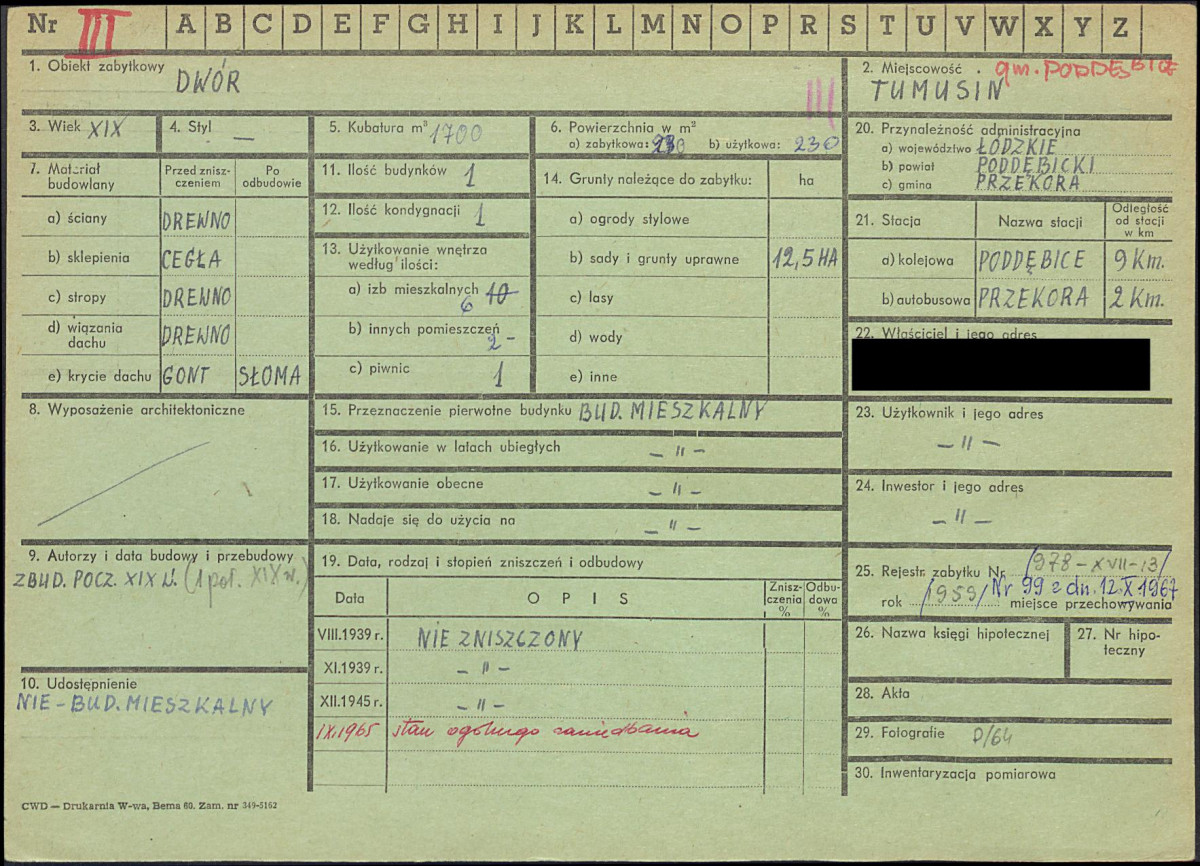 Nr III A B C D E F G H I J K L M N O P R S T U V W X Y Z
1. Obiekt zabytkowy
DWÓR
III
2. Miejscowość gm. PODDĘBICE
TUMUSIN
3. Wiek XIX
4. Styl —
5. Kubatura m³ 1700
6. Powierzchnia w m²
a) zabytkowa: 230 b) użytkowa: 230
7. Materiał budowlany
Przed zniszczeniem
Po odbudowie
a) ściany DREWNO
b) sklepienia CEGŁA
c) stropy DREWNO
d) wiązania dachu DREWNO
e) krycie dachu GONT SŁOMA
8. Wyposażenie architektoniczne
9. Autorzy i data budowy i przebudowy
ZBUD. POCZ. XIX W. (1 poł. XIX w.)
10. Udostępnienie
NIE - BUD. MIESZKALNY
11. Ilość budynków 1
12. Ilość kondygnacji 1
13. Użytkowanie wnętrza
według ilości:
a) izb mieszkalnych 10
6
b) innych pomieszczeń
2 -
c) piwnic 1
14. Grunty należące do zabytku: ha
a) ogrody stylowe
b) sady i grunty uprawne 12,5 HA
c) lasy
d) wody
e) inne
15. Przeznaczenie pierwotne budynku BUD. MIESZKALNY
16. Użytkowanie w latach ubiegłych — " —
17. Użytkowanie obecne — " —
18. Nadaje się do użycia na — " —
19. Data, rodzaj i stopień zniszczeń i odbudowy
Data OPIS Zniszczenia % Odbudowa %
VIII.1939 r. NIE ZNISZCZONY
XI.1939 r. — " —
XII.1945 r. — " —
IX.1965 stan ogólnego zaniedbania
20. Przynależność administracyjna
a) województwo ŁÓDZKIE
b) powiat PODDĘBICKI
c) gmina PRZEKORA
21. Stacja Nazwa stacji Odległość od stacji w km
a) kolejowa PODDĘBICE 9 Km.
b) autobusowa PRZEKORA 2 Km.
22. Właściciel i jego adres
23. Użytkownik i jego adres
— " —
24. Inwestor i jego adres
— " —
25. Rejestr. zabytku Nr /978-XVII-13/
rok /1959/ Nr 99 z dn. 12.X.1967
miejsce przechowywania
26. Nazwa księgi hipotecznej
27. Nr hipoteczny
28. Akta
29. Fotografie D/64
30. Inwentaryzacja pomiarowa
CWD — Drukarnia W-wa, Bema 60. Zam. nr 349-5162